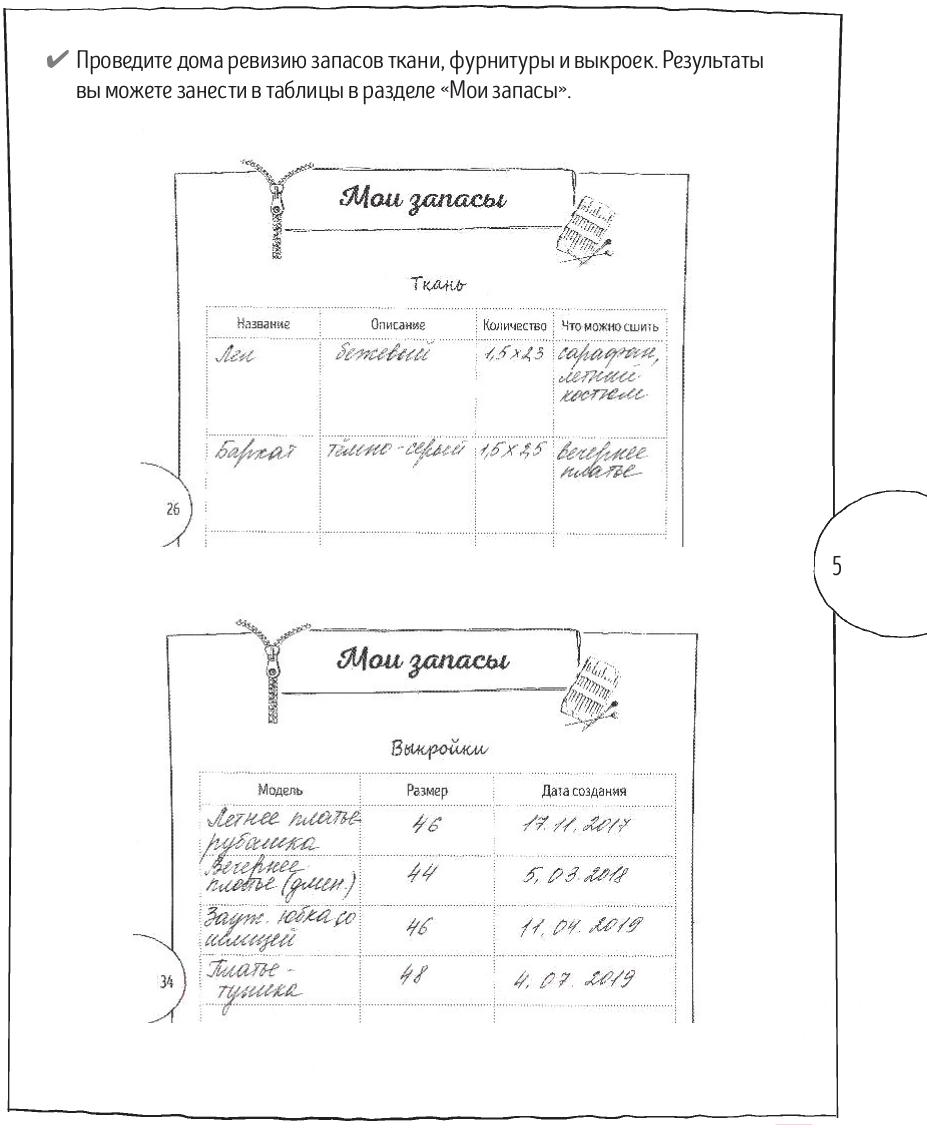 ✔ Проведите дома ревизию запасов ткани, фурнитуры и выкроек. Результаты
вы можете занести в таблицы в разделе «Мои запасы».
Мои запасы
Ткань
Название Описание Количество Что можно сшить
Лен бежевый 1,5×2,3 сарафан,
летний
костюм
Бархат тёмно-серый 1,5×2,5 вечернее
платье
26
5
Мои запасы
Выкройки
Модель Размер Дата создания
Летнее платье- 46 17.11.2017
рубашка
Вечернее 44 5.03.2018
платье (длин.)
Зауж. юбка со 46 11.04.2019
шлицей
Платье- 48 4.07.2019
туника
34